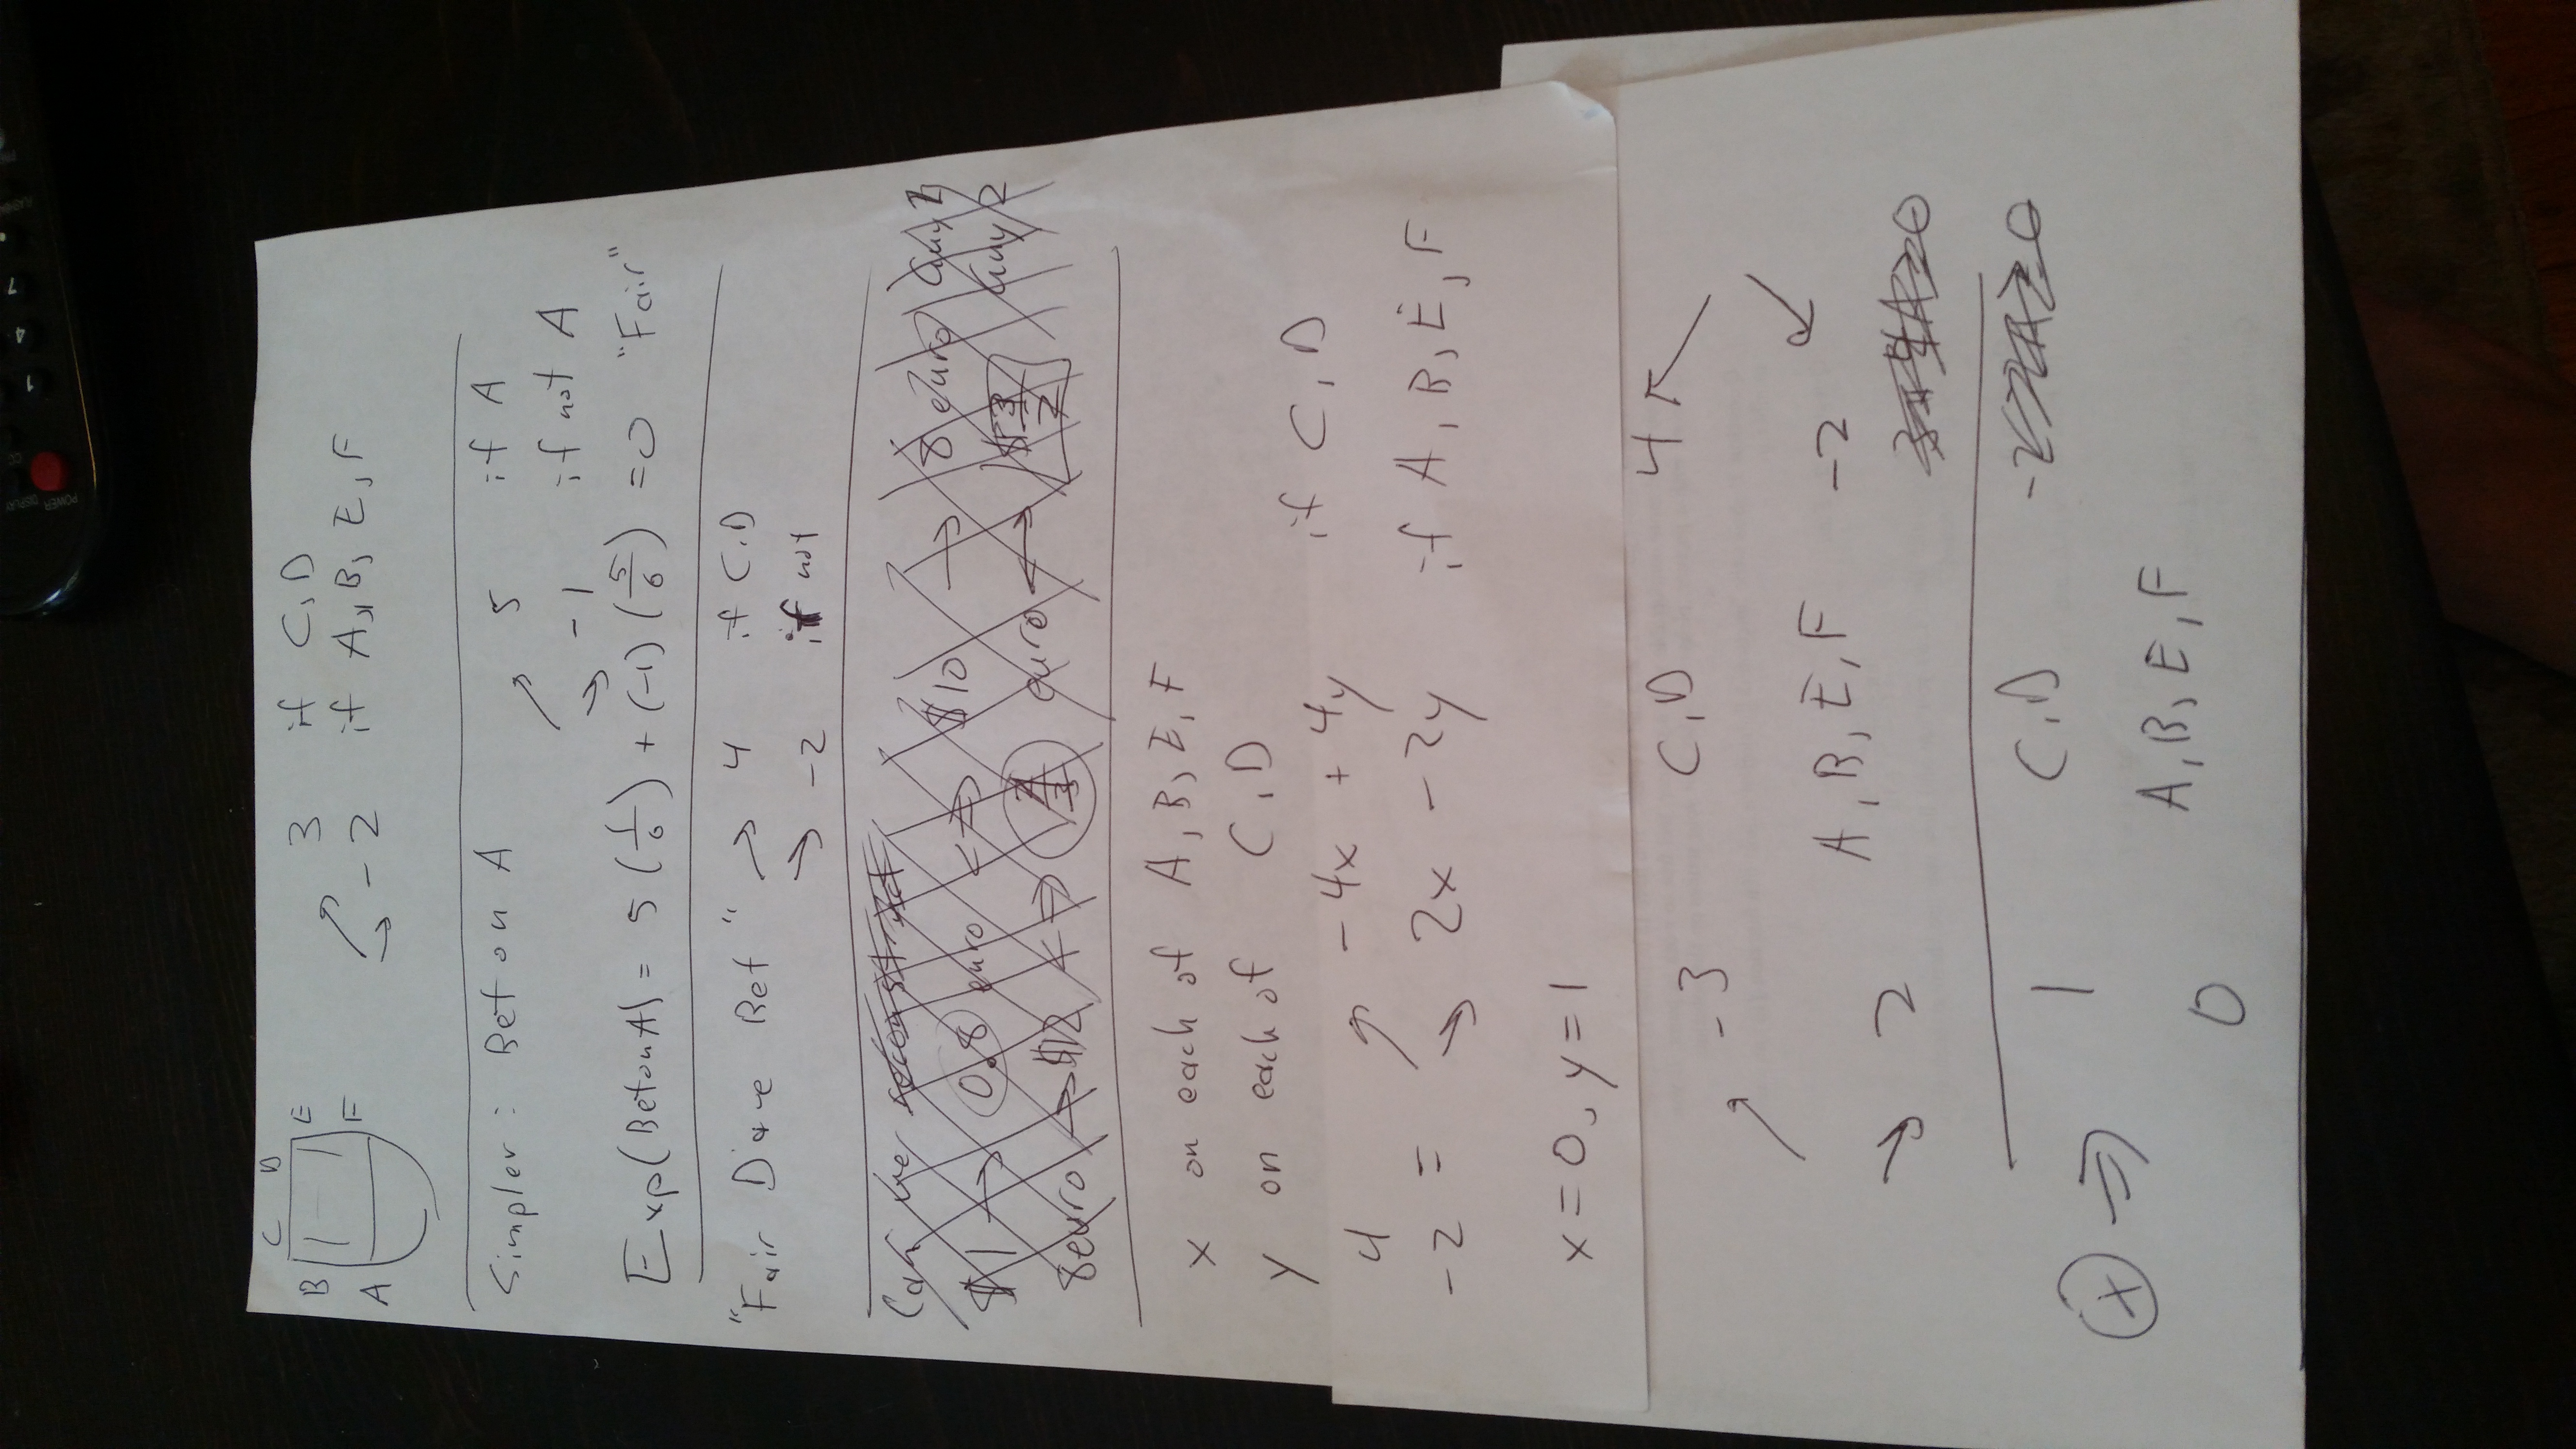 POWER DISPLAY
1 4 7
C D
B E
A F
3 if C, D
-2 if A, B, E, F
Simpler: Bet on A
5 if A
-1 if not A
Exp(Bet on A) = 5 (1/6) + (-1) (5/6) = 0 "Fair"
"Fair Dave Bet" → 4 if C, D
→ -2 if not
Can we reconstruct
$1 → 0.8 euro <=> $10 → 8 euro Guy 1
Guy 2
8 euro → $12 <=> 2/3 euro ↔ $3/2
x on each of A, B, E, F
y on each of C, D
-4x + 4y if C, D
4
-2 = 2x - 2y if A, B, E, F
x = 0, y = 1
-3 C, D 4
2 A, B, E, F -2
1 C, D
(+) ⇒
0 A, B, E, F